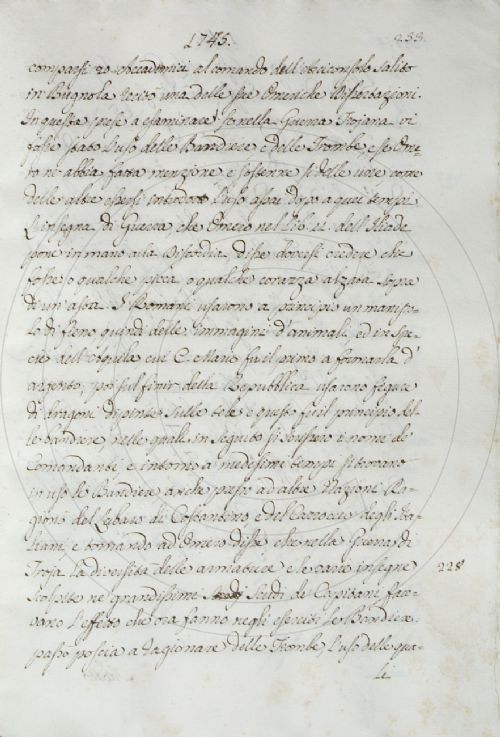 1745. 233.
comparsi 20 Accademici al comando dell'Arciconsolo Salito
in Bugnola recitò una delle sue Omeriche Dissertazioni.
In questa prese a esaminare se nella Guerra Trojana vi
fosse stato l'uso delle Bandiere e delle Trombe, e se Ome-
ro ne abbia fatta menzione e sostenne sì delle une come
delle altre essersi introdotto l'uso assai dopo a quei tempi
L'insegna di Guerra che Omero nel Lib. 11. dell'Iliade
pone in mano alla Discordia disse doversi credere che
fosse o qualche picca o qualche corazza alzata sopra
di un'asta. I Romani usarono a principio un manipo-
lo di fieno quindi delle Immagini d'animali, ed in spe-
cie dell'Aquila cui C. Mario fu il primo a formarla d'
argento, poi sul finir della Repubblica usarono figure
di dragoni dipinte sulle tele e questo fu il principio del-
le bandiere, nelle quali in seguito si scrissero i nomi de'
Comandanti, e intorno a' medesimi tempi si trovaro
in uso le Bandiere anche presso ad altre Nazioni Ra-
gionò del Labaro di Costantino, e del Carroccio degli Ita-
liani e tornando ad Omero disse che nella Guerra di
Troja la diversità delle armature e le varie insegne 228
scolpite ne' grandissimi Scudi de' Capitani face-
vano l'effetto che ora fanno negli eserciti le Bandiere.
passò poscia a ragionare delle Trombe, l'uso delle qua-
li